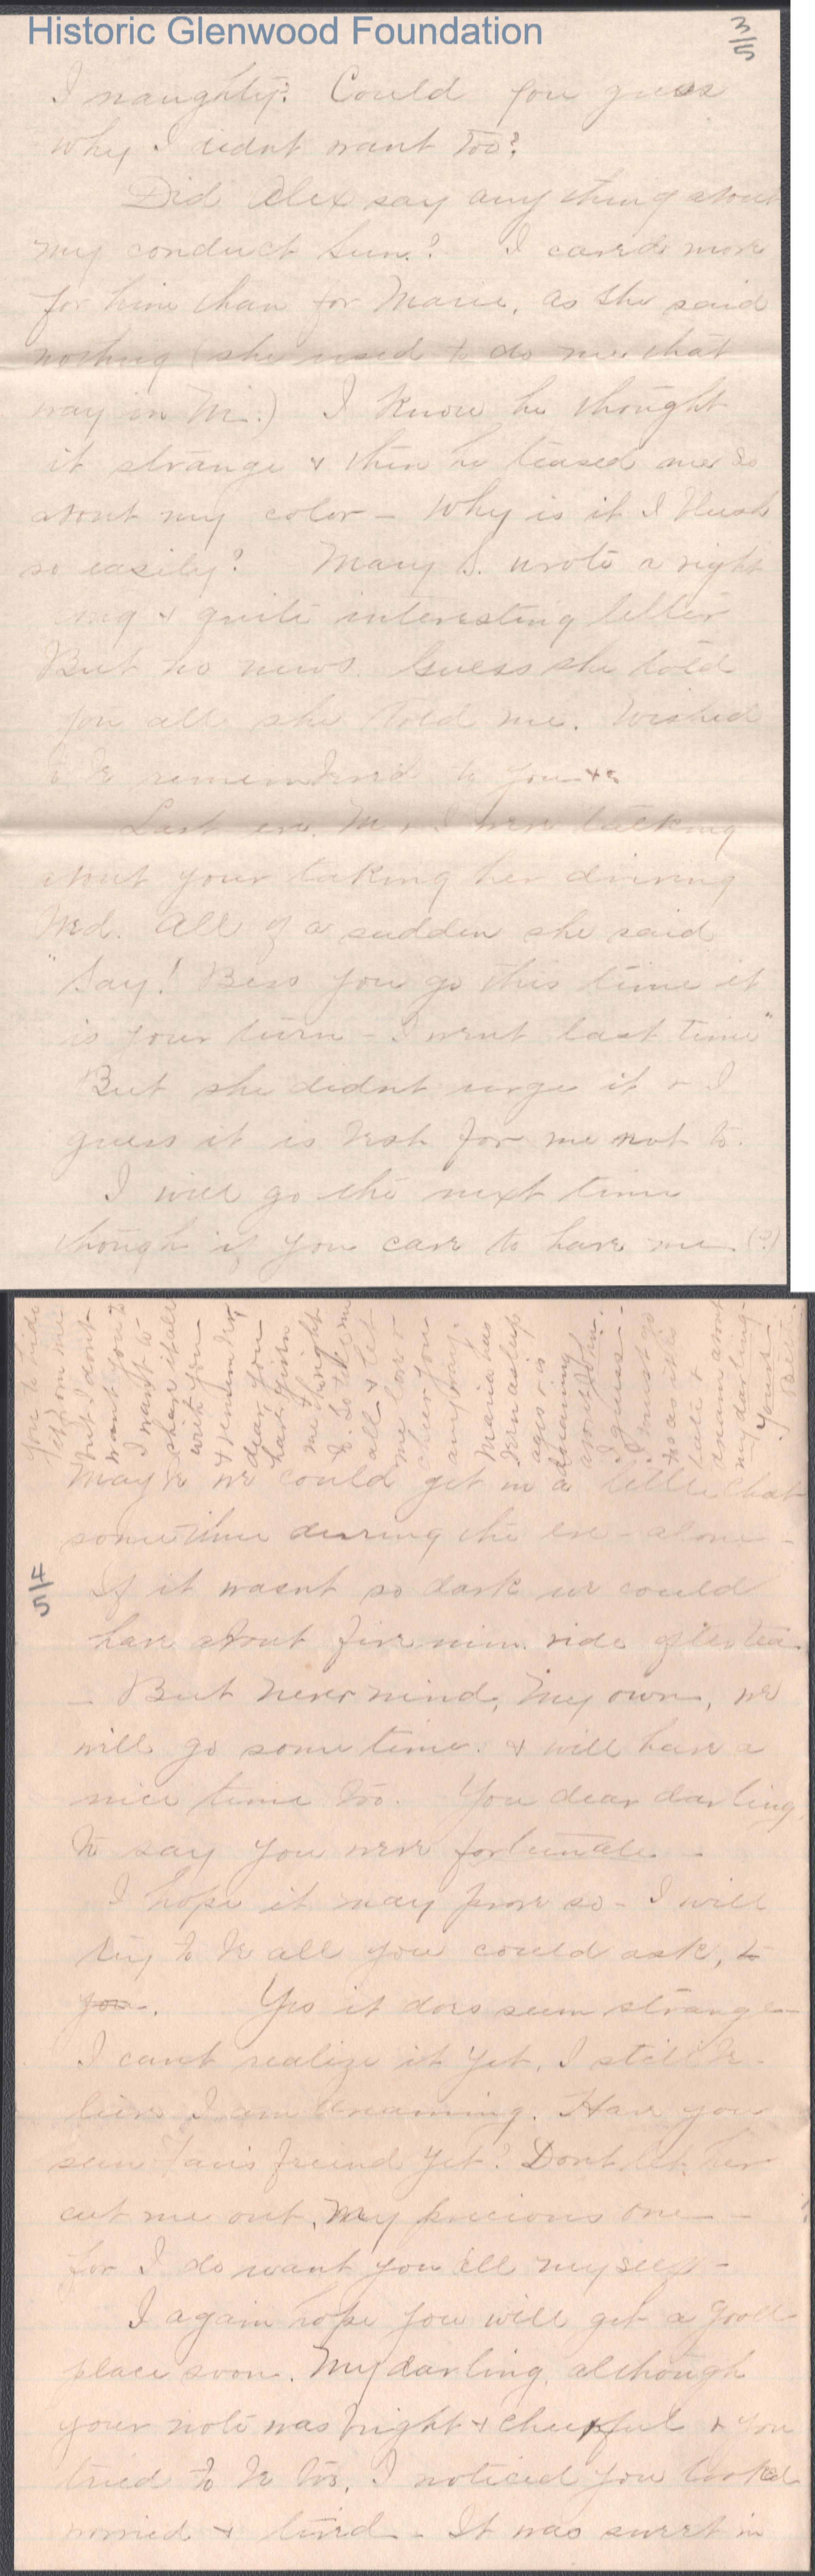 Historic Glenwood Foundation
3/5
I naughty? Could you guess
why I didnt want too?
Did Alex say any thing about
my conduct Sun.? I cared more
for him than for Marie, as she said
nothing (she used to do me that
way in Mi.) I know he thought
it strange & then he teased me so
about my color - Why is it I blush
so easily? Mary S. wrote a right
long & quite interesting letter
But no news. Guess she told
you all she told me. Wished
to be remembered to you &c.
Last eve. M & I were talking
about your taking her driving
Wed. All of a sudden she said
"Say! Bess you go this time it
is your turn - I went last time"
But she didnt urge it & I
guess it is best for me not to.
I will go the next time
though if you care to have me. (?)
May be we could get in a little chat
sometime during the eve - alone -
4/5
If it wasnt so dark we could
have about five min. ride after tea.
- But never mind, my own, we
will go some time. & will have a
nice time too. You dear darling,
to say you were fortunate. -
I hope it may prove so - I will
try to be all you could ask, to
you. Yes it does seem strange -
I cant realize it yet, I still be-
lieve I am dreaming. Have you
seen friend yet? Dont let her
cut me out, My precious one -
for I do want you all myself -
I again hope you will get a good
place soon. My darling, although
your note was bright & cheerful & you
tried to be too, I noticed you looked
worried & tired - It was sweet in
you to hide
it from me
but I dont
want you to
I want to
share it all
with you
& remember,
dear, you
have given
me the right
to. So tell me
all & let
me love &
cheer you
any way.
Maria has
been asleep
ages & is
dreaming
about John.
I guess -
I must go
too as it is
late &
dream about
my darling -
Yours -
Bess.